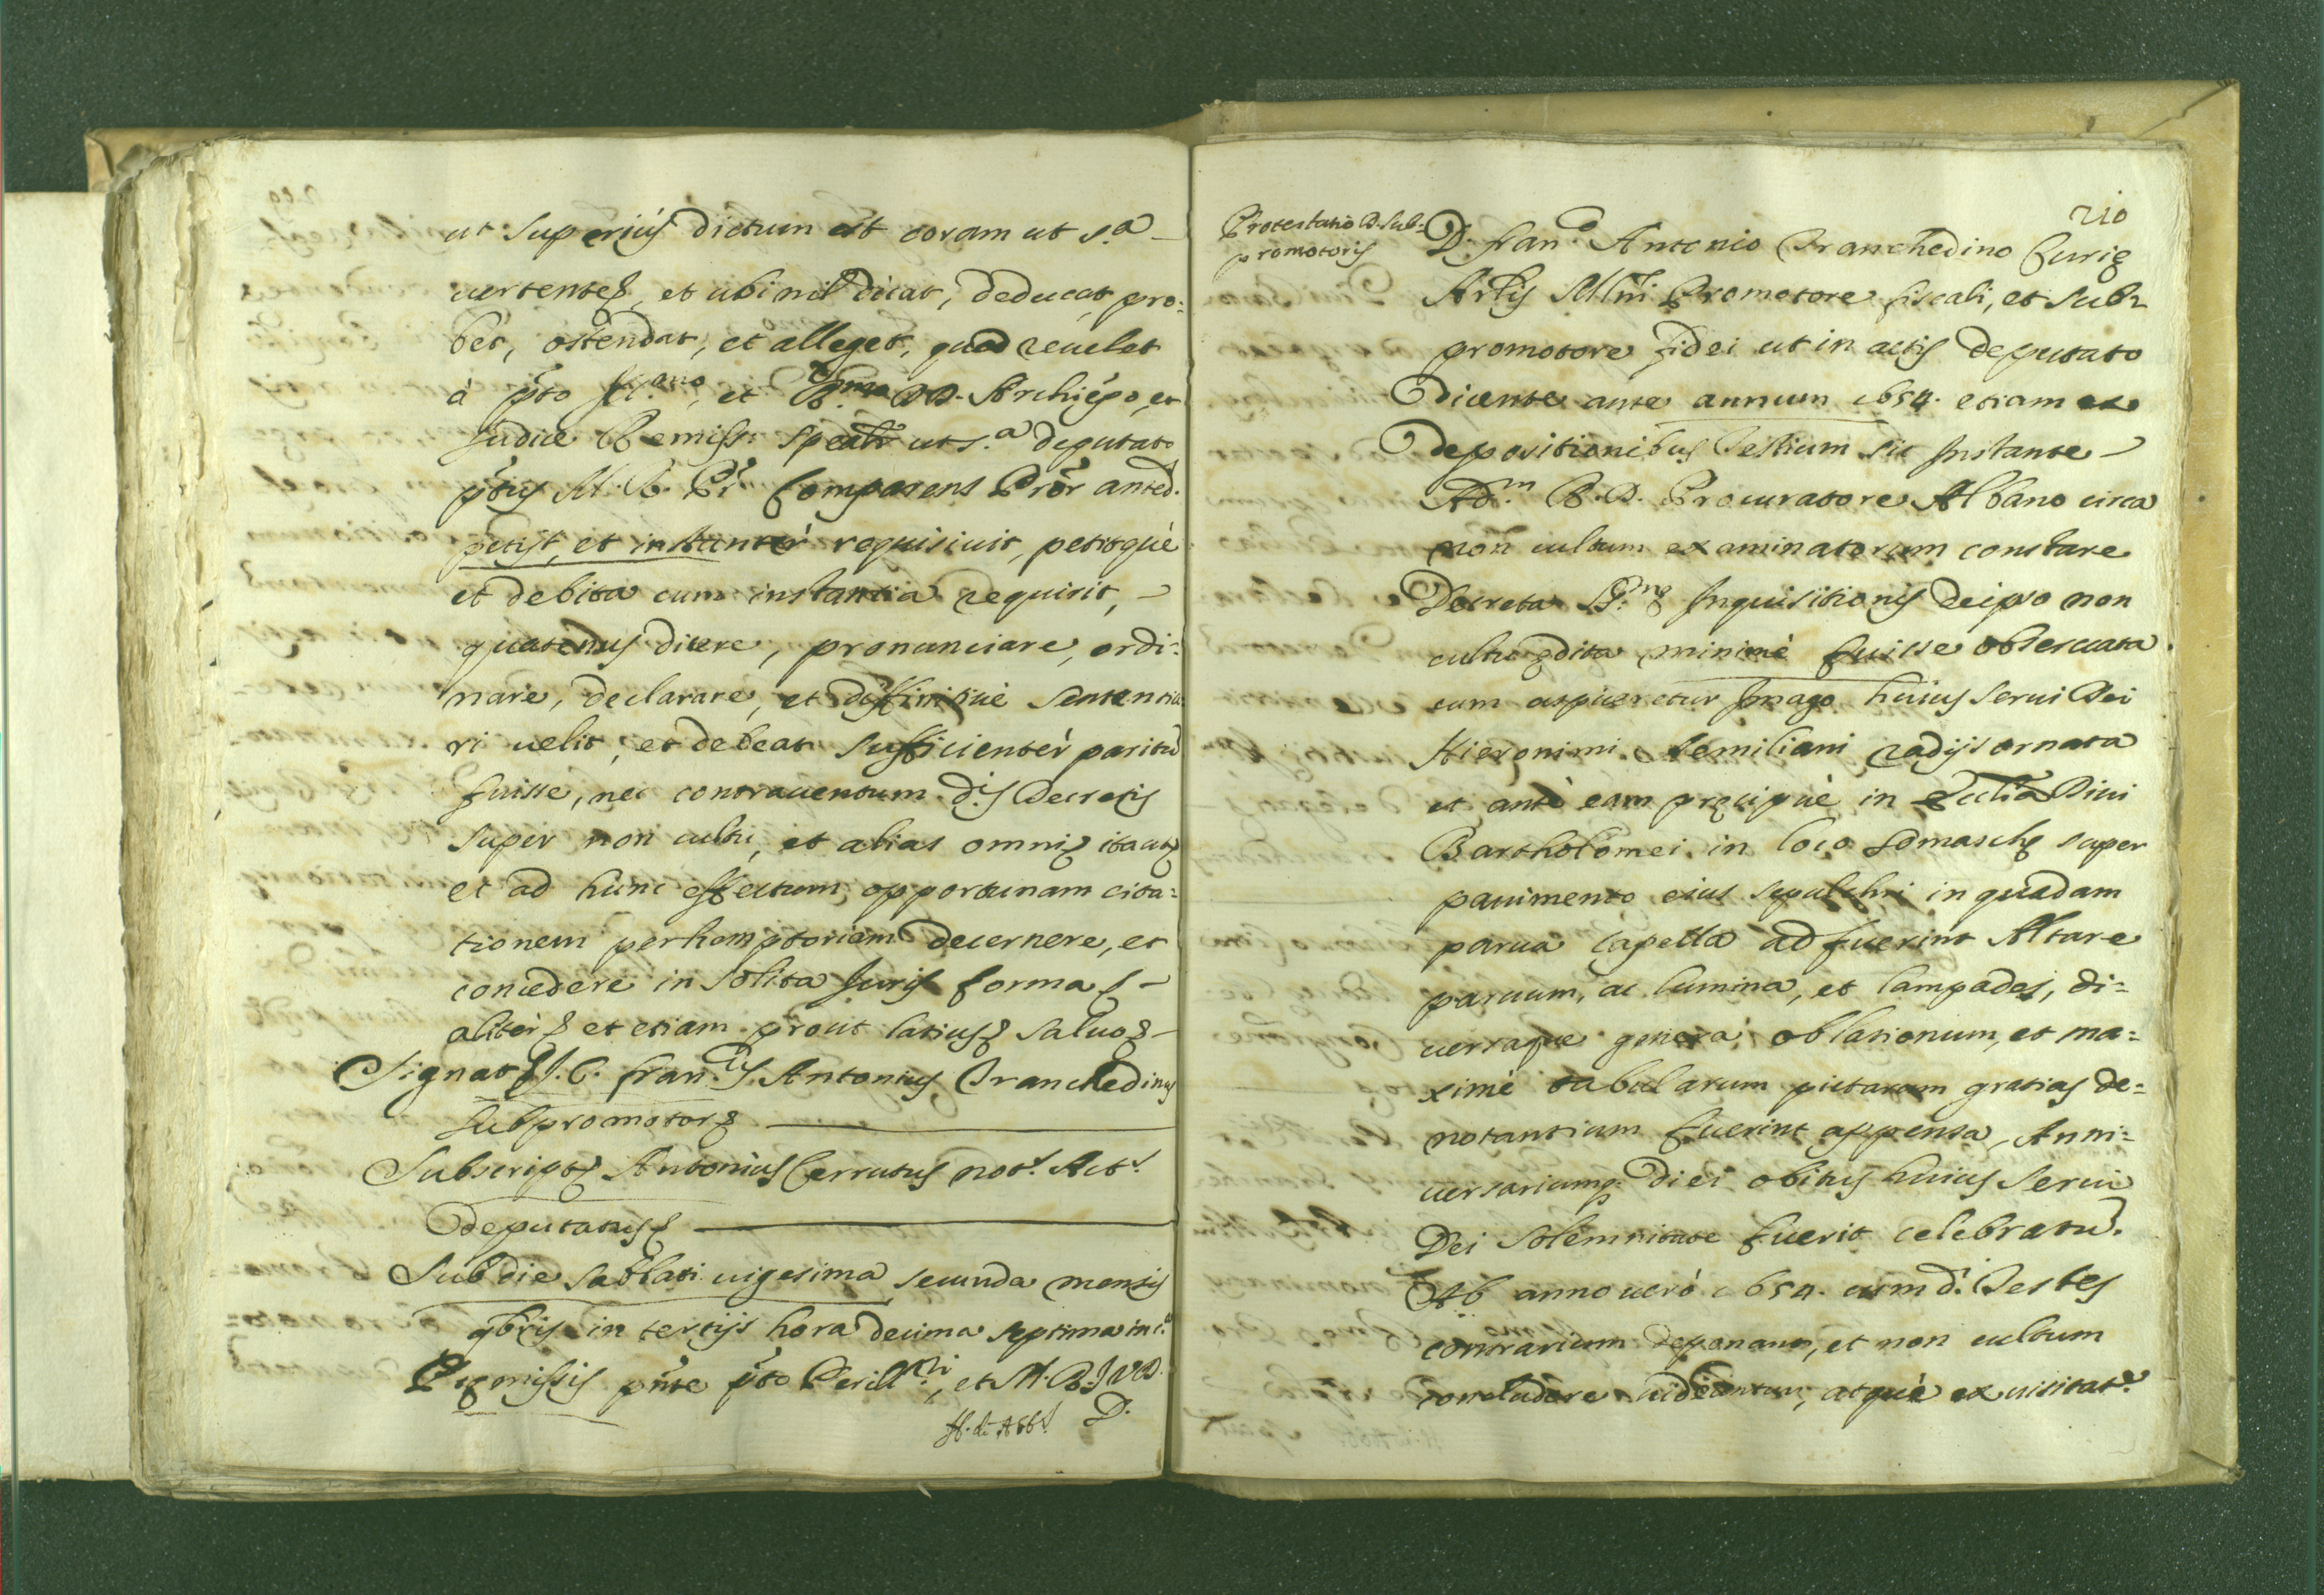 ut superius dictum est coram ut s.a
uertentes, et ubi nil dicat, deducat, pro:
bet, ostendat, et alleget, quod reuelet
à pto Ill.mo, et R.mo DD. Archiepo, et
Iudice Remiss. speali ut s.a deputato
ptus M. R. Pr. Comparens Pror anted.
petijt, et instanter requisiuit, petitque
et debita cum instantia requirit,
quatenus dicere, pronunciare, ordi:
nare, declarare, et diffinitiuè sententia:
ri uelit, et debeat sufficientèr paritũ
fuisse, nec contrauentum d.is Decretis
super non cultu, et alias omni itaut
et ad hunc effectum opportunam cita:
tionem perhemptoriam decernere, et
concedere in solita Iuris forma
alitèr et etiam prout latius saluo
Signat I. C. Fran.cus Antonius Tranchedinus
subpromotor
Subscript Antonius Cerrutus not.s Act.s
deputatus
Sub die sabbati uigesima secunda mensis
9bris in tertijs hora decima septima in c.a
Premissis pnte pto Perill.ri, et M. R. I.V.D.
D.
210
Protestatio D. Sub:
promotoris
D. Fran.co Antonio Tranchedino Curie
Arlis Mlni Promotore fiscali, et sub:
promotore fidei ut in actis deputato
Dicente ante annum 1654. etiam ex
depositionibus Testium sic Instante
Ad.m R. D. Procuratore Albano circa
non cultum examinatorum constare
Decreta S.me Inquisitionis de ipso non
cultu edita minimè fuisse obseruata
cum aspiceretur Imago huius serui Dei
Hieronimi Aemiliani radijs ornata
et antè eam precipuè in Ecclia Diui
Bartholomei in loco Somasche super
pauimento eius sepulchri in quadam
parua Capella adfuerint Altare
paruum, ac lumina, et lampades, di:
uersaque genera oblationum, et ma:
ximè tabularum pictarum gratias de:
notantium fuerint appensa, Anni:
uersariumq. diei obitus huius serui
Dei solemnitate fuerit celebratũ.
Ab anno uerò 1654. cum d.i Testes
contrarium deponant, et non cultum
concludere uideantur, atquè ex uisitat.e